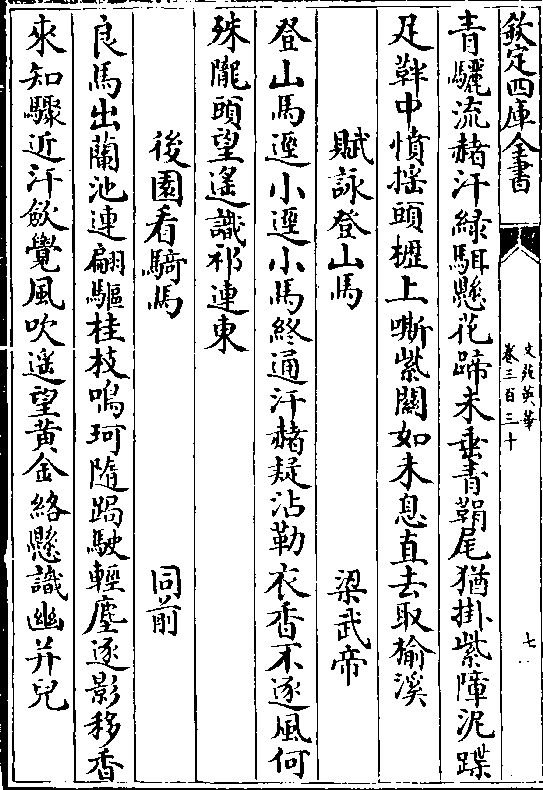 欽定四庫全書
文苑英華
卷三百三十
七
青驪流赭汗緑駬懸花蹄未垂青鞙尾猶掛紫障泥蹀
足絆中憤揺頭櫪上嘶紫關如未息直去取榆溪
賦詠登山馬 梁武帝
登山馬逕小逕小馬終通汗赭疑沾勒衣香不逐風何
殊隴頭望遙識祁連東
後園看騎馬 同前
良馬出蘭池連翩驅桂枝鳴珂隨跼駛輕塵逐影移香
來知驟近汗斂覺風吹遥望黄金絡懸識幽并兒